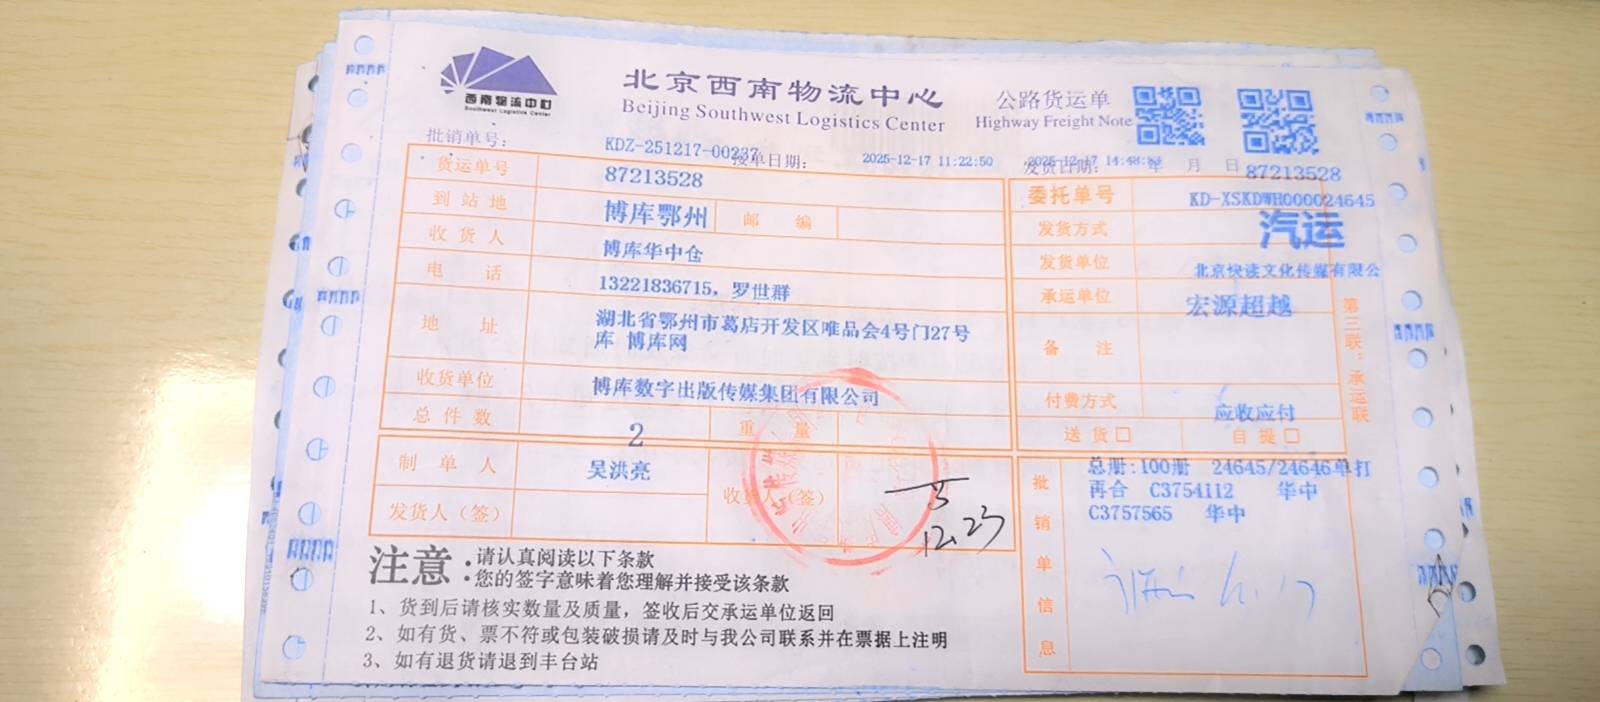 西南物流中心
Southwest Logistics Center
北京西南物流中心
Beijing Southwest Logistics Center
公路货运单
Highway Freight Note
批销单号: KDZ-251217-00237 接单日期: 2025-12-17 11:22:50 发货日期: 2025-12-17 14:48: 年 月 日
87213528
货运单号 87213528
到站地 博库鄂州 邮编
收货人 博库华中仓
电话 13221836715, 罗世群
地址 湖北省鄂州市葛店开发区唯品会4号门27号
库 博库网
收货单位 博库数字出版传媒集团有限公司
总件数 2 重量
制单人 吴洪亮 收货人(签)
发货人(签)
12.23
委托单号 KD-XSKDWH000024645
发货方式 汽运
发货单位 北京快读文化传媒有限公
承运单位 宏源超越
备注
付费方式 应收应付
送货□ 自提□
批销单信息
总册:100册 24645/24646单打
再合 C3754112 华中
C3757565 华中
第三联:承运联
注意:请认真阅读以下条款
您的签字意味着您理解并接受该条款
1、货到后请核实数量及质量,签收后交承运单位返回
2、如有货、票不符或包装破损请及时与我公司联系并在票据上注明
3、如有退货请退到丰台站